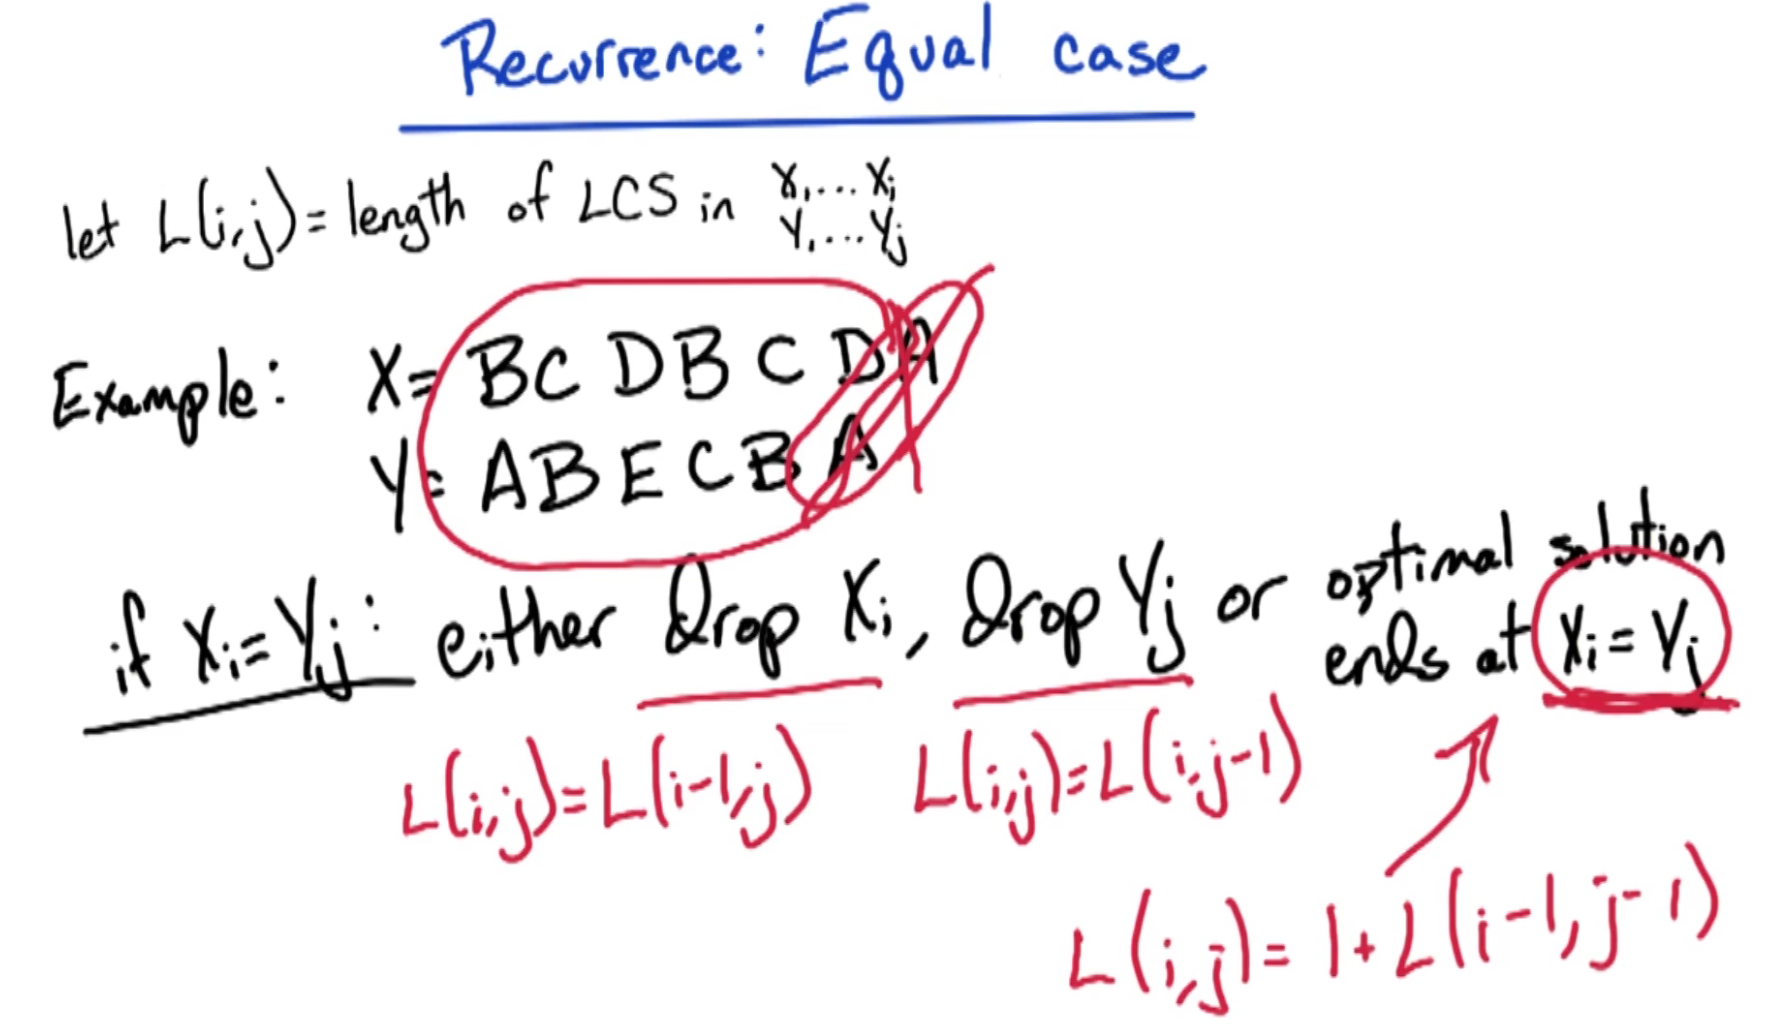 Recurrence: Equal case
let L(i,j) = length of LCS in X₁...Xᵢ
Y₁...Yⱼ
Example: X = BCDBCDA
Y = ABECBA
if Xᵢ = Yⱼ: either drop Xᵢ, drop Yⱼ or optimal solution
ends at Xᵢ = Yⱼ
L(i,j) = L(i-1,j) L(i,j) = L(i,j-1)
L(i,j) = 1 + L(i-1, j-1)